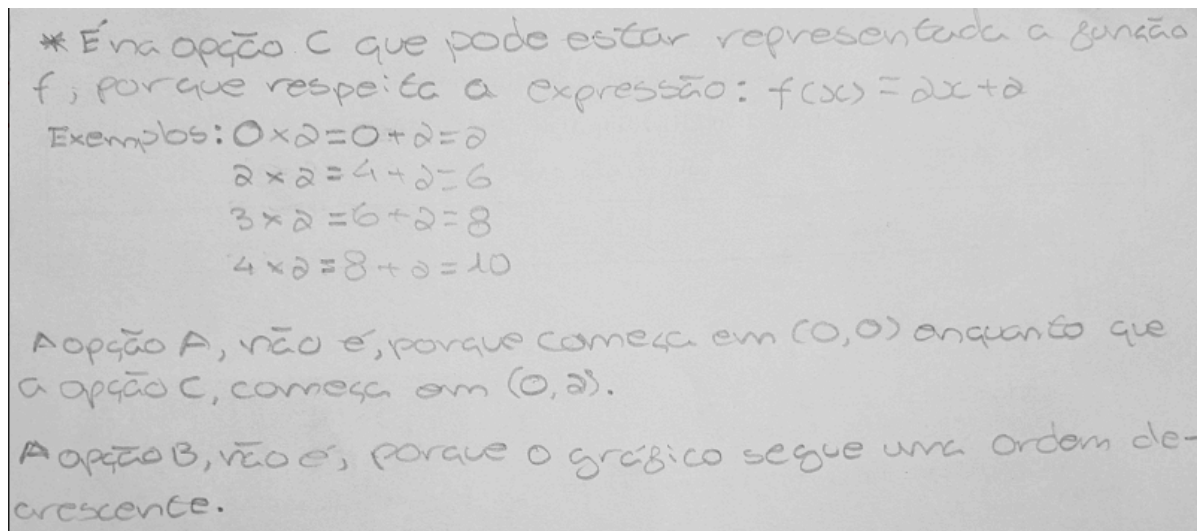 * É na opção C que pode estar representada a função
f, porque respeita a expressão: f(x) = 2x+2
Exemplos: 0×2=0+2=2
2×2=4+2=6
3×2=6+2=8
4×2=8+2=10
A opção A, não é, porque começa em (0,0) enquanto que
a opção C, começa em (0,2).
A opção B, não é, porque o gráfico segue uma ordem de-
crescente.